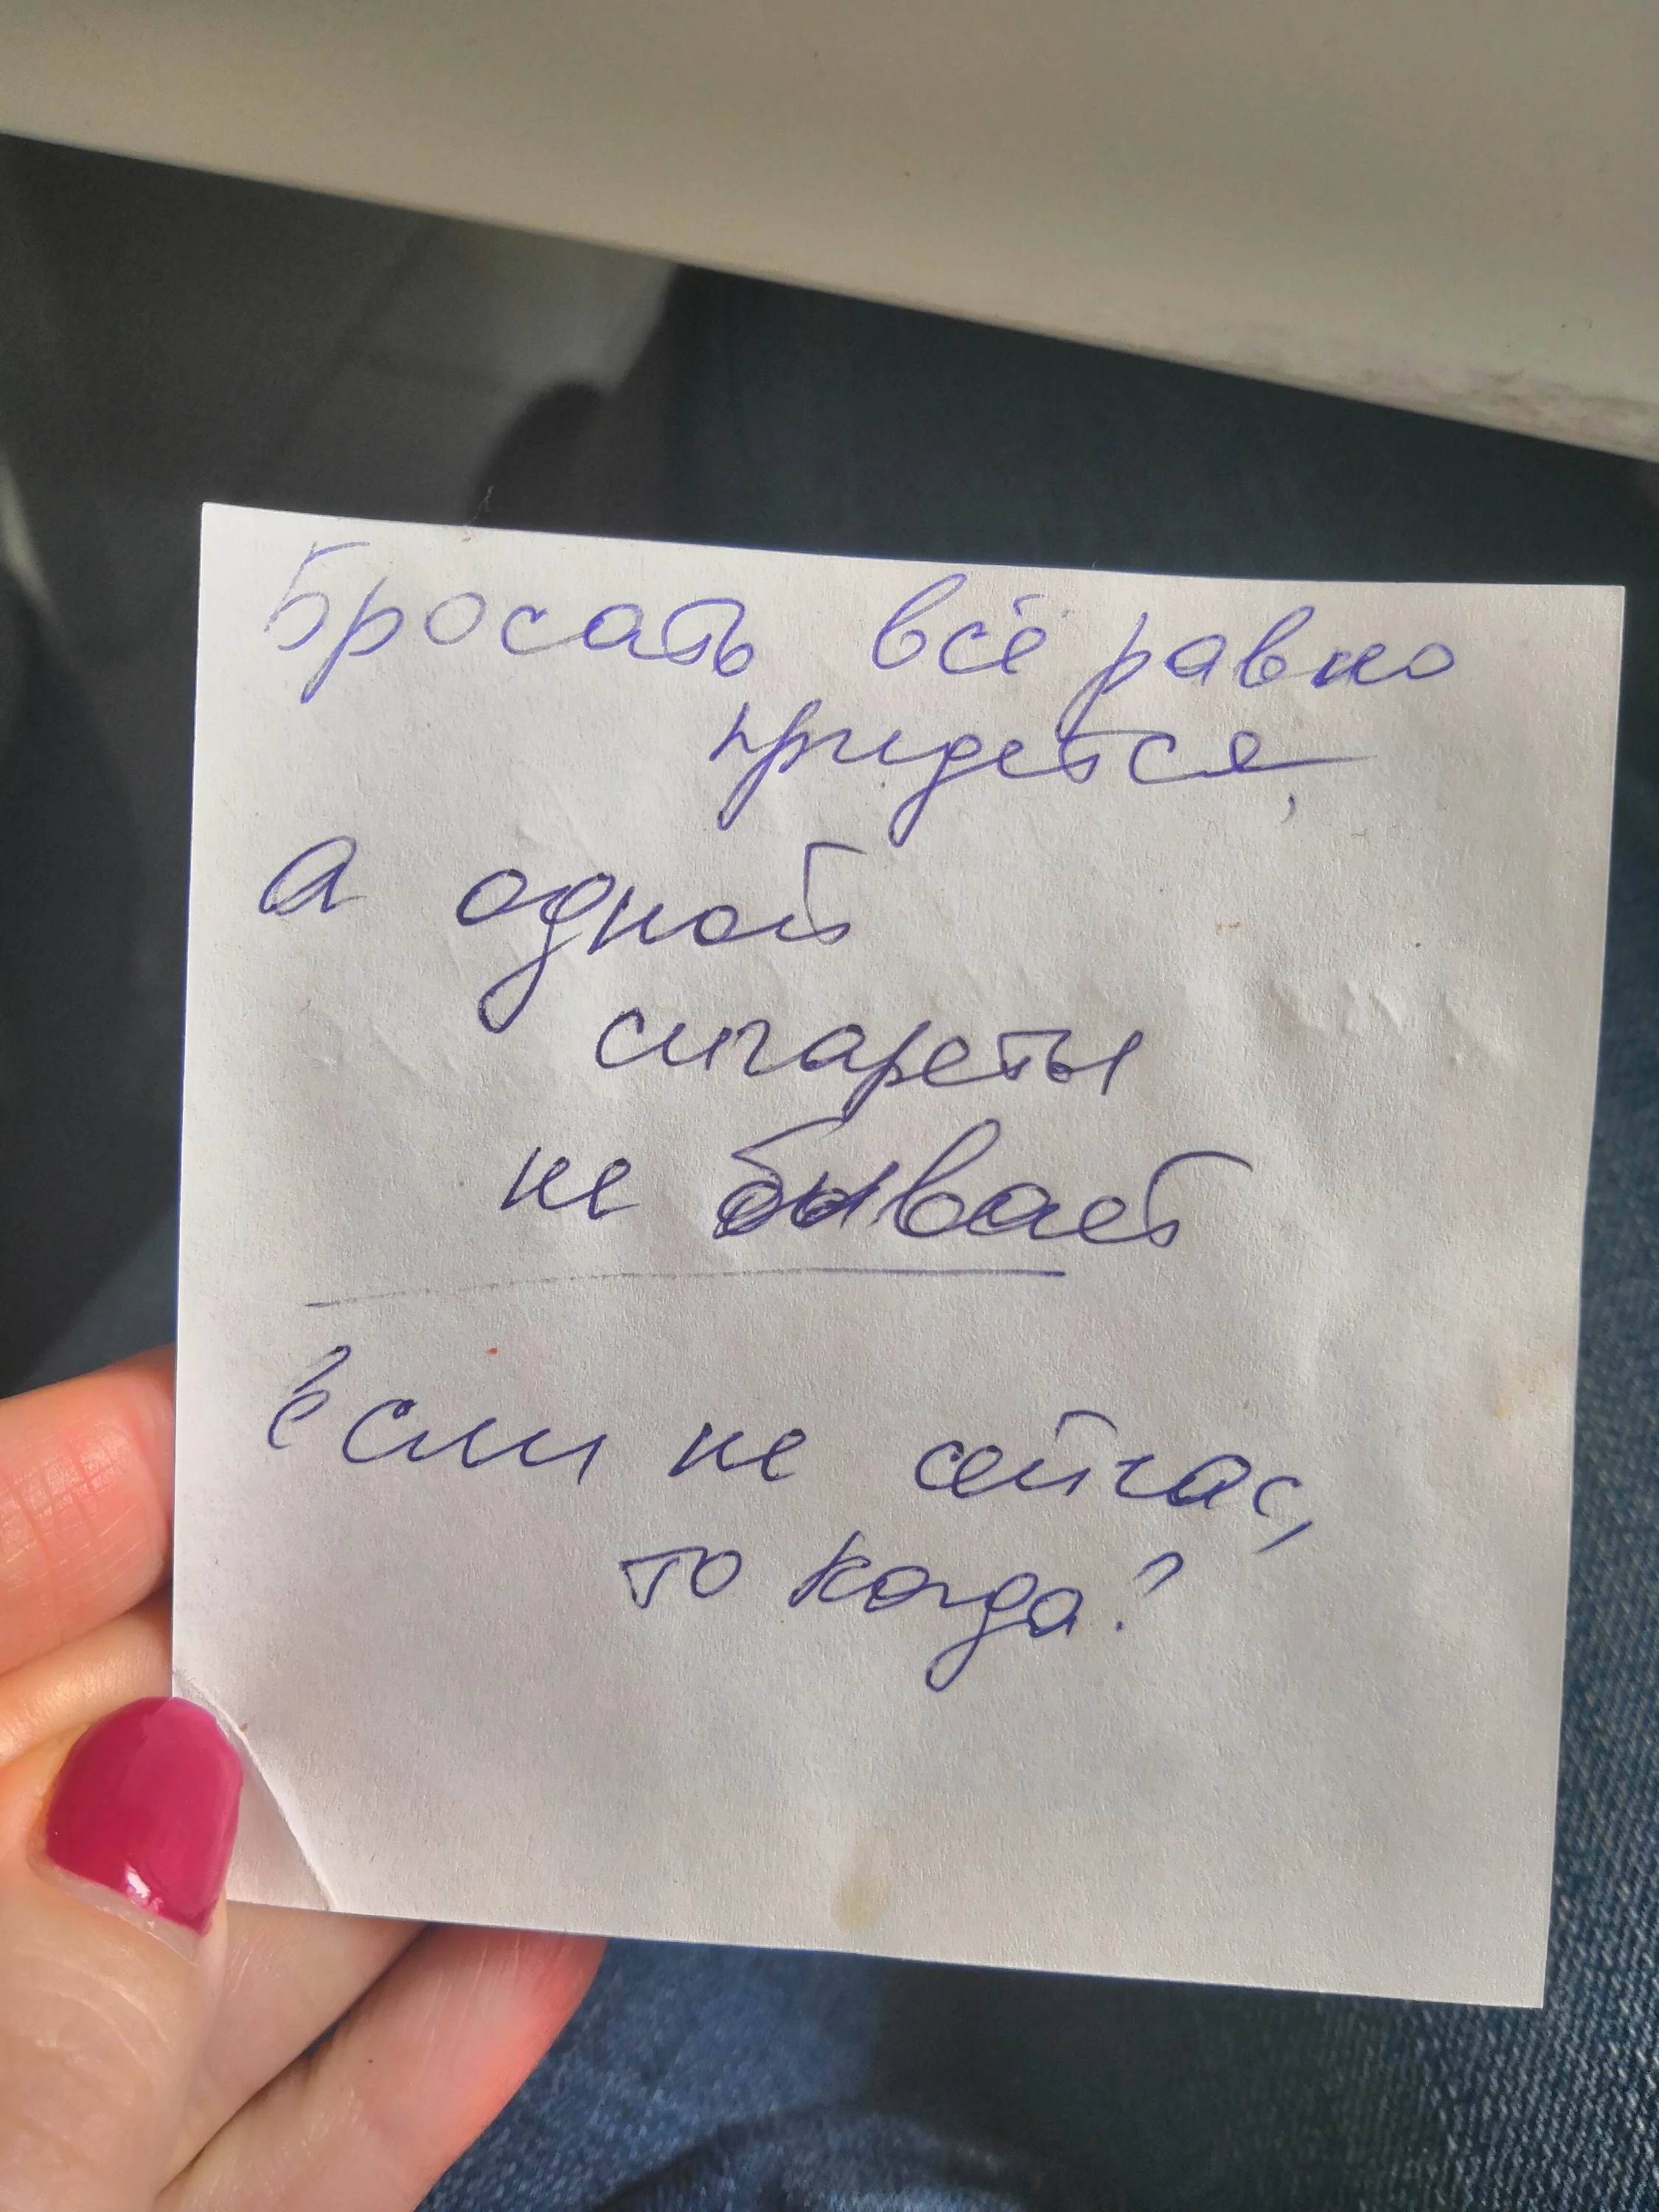 Бросать всё равно
придется,
а одной
сигареты
не бывает
Если не сейчас,
то когда?